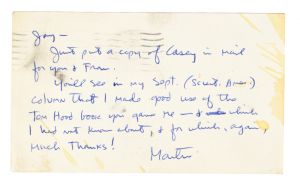 Jay—
Just put a copy of Casey in mail
for you & Fran.
You'll see in my Sept. (Scient. Amer.)
column that I made good use of the
Tom Hood book you gave me — & which
I had not known about, & for which, again,
Much Thanks!
Martin